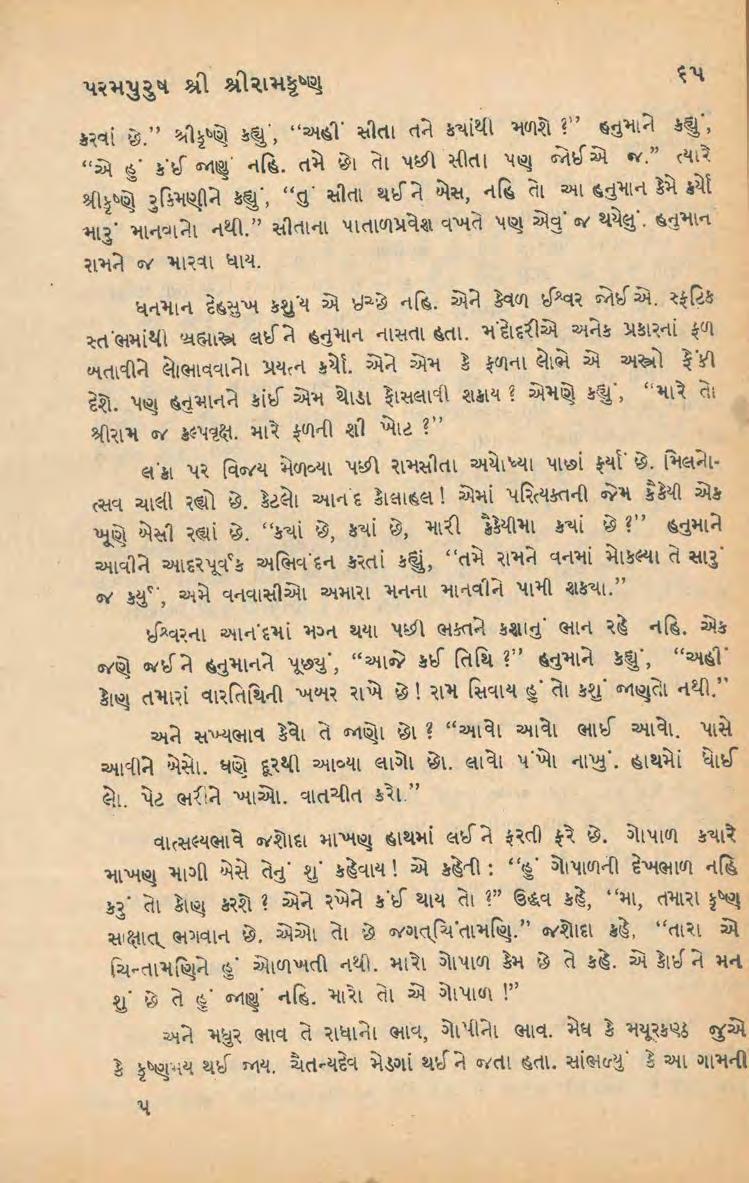 પરમપુરુષ શ્રી શ્રીરામકૃષ્ણ
૬૫
કરવાં છે.” શ્રીકૃષ્ણે કહ્યું, “અહીં સીતા તને કયાંથી મળશે ?” હનુમાને કહ્યું,
“એ હું કંઈ જાણું નહિ. તમે છો તો પછી સીતા પણ જોઈએ જ.” ત્યારે
શ્રીકૃષ્ણે રુકિમણીને કહ્યું, “તું સીતા થઈને બેસ, નહિ તો આ હનુમાન કેમે કર્યો
મારું માનવાનો નથી.” સીતાના પાતાળપ્રવેશ વખતે પણ એવું જ થયેલું. હનુમાન
રામને જ મારવા ધાય.
ધનમાન દેહસુખ કશુંય એ ઇચ્છે નહિ. એને કેવળ ઈશ્વર જોઈએ. સ્ફટિક
સ્તંભમાંથી બ્રહ્માસ્ત્ર લઈને હનુમાન નાસતા હતા. મંદોદરીએ અનેક પ્રકારનાં ફળ
બતાવીને લોભાવવાનો પ્રયત્ન કર્યો. એને એમ કે ફળના લોભે એ અસ્ત્રો ફેંકી
દેશે. પણ હનુમાનને કાંઈ એમ થોડા ફોસલાવી શકાય ? એમણે કહ્યું, “મારે તો
શ્રીરામ જ કલ્પવૃક્ષ. મારે ફળની શી ખોટ ?”
લંકા પર વિજય મેળવ્યા પછી રામસીતા અયોધ્યા પાછાં ફર્યાં છે. મિલનો-
ત્સવ ચાલી રહ્યો છે. કેટલો આનંદ કોલાહલ ! એમાં પરિત્યક્તની જેમ કૈકેયી એક
ખૂણે બેસી રહ્યાં છે. “કયાં છે, કયાં છે, મારી કૈકેયીમા કયાં છે ?” હનુમાને
આવીને આદરપૂર્વક અભિવંદન કરતાં કહ્યું, “તમે રામને વનમાં મોકલ્યા તે સારું
જ કર્યું, અમે વનવાસીઓ અમારા મનના માનવીને પામી શકયા.”
ઈશ્વરના આનંદમાં મગ્ન થયા પછી ભક્તને કશાનું ભાન રહે નહિ. એક
જણે જઈને હનુમાનને પૂછયું, “આજે કઈ તિથિ ?” હનુમાને કહ્યું, “અહીં
કોણ તમારાં વારતિથિની ખબર રાખે છે ! રામ સિવાય હું તો કશું જાણતો નથી.”
અને સખ્યભાવ કેવો તે જાણો છો ? “આવો આવો ભાઈ આવો. પાસે
આવીને બેસો. ઘણે દૂરથી આવ્યા લાગો છો. લાવો પંખો નાખું. હાથમોં ધોઈ
લો. પેટ ભરીને ખાઓ. વાતચીત કરો.”
વાત્સલ્યભાવે જશોદા માખણ હાથમાં લઈને ફરતી ફરે છે. ગોપાળ કયારે
માખણ માગી બેસે તેનું શું કહેવાય ! એ કહેતી : “હું ગોપાળની દેખભાળ નહિ
કરું તો કોણ કરશે ? એને રખેને કંઈ થાય તો ?” ઉદ્ધવ કહે, “મા, તમારા કૃષ્ણ
સાક્ષાત્ ભગવાન છે. એઓ તો છે જગત્ચિંતામણિ.” જશોદા કહે, “તારા એ
ચિન્તામણિને હું ઓળખતી નથી. મારો ગોપાળ કેમ છે તે કહે. એ કોઈને મન
શું છે તે હું જાણું નહિ. મારો તો એ ગોપાળ !”
અને મધુર ભાવ તે રાધાનો ભાવ, ગોપીનો ભાવ. મેઘ કે મયૂરકણ્ઠ જુએ
કે કૃષ્ણમય થઈ જાય. ચૈતન્યદેવ મેડગાં થઈને જતા હતા. સાંભળ્યું કે આ ગામની
૫